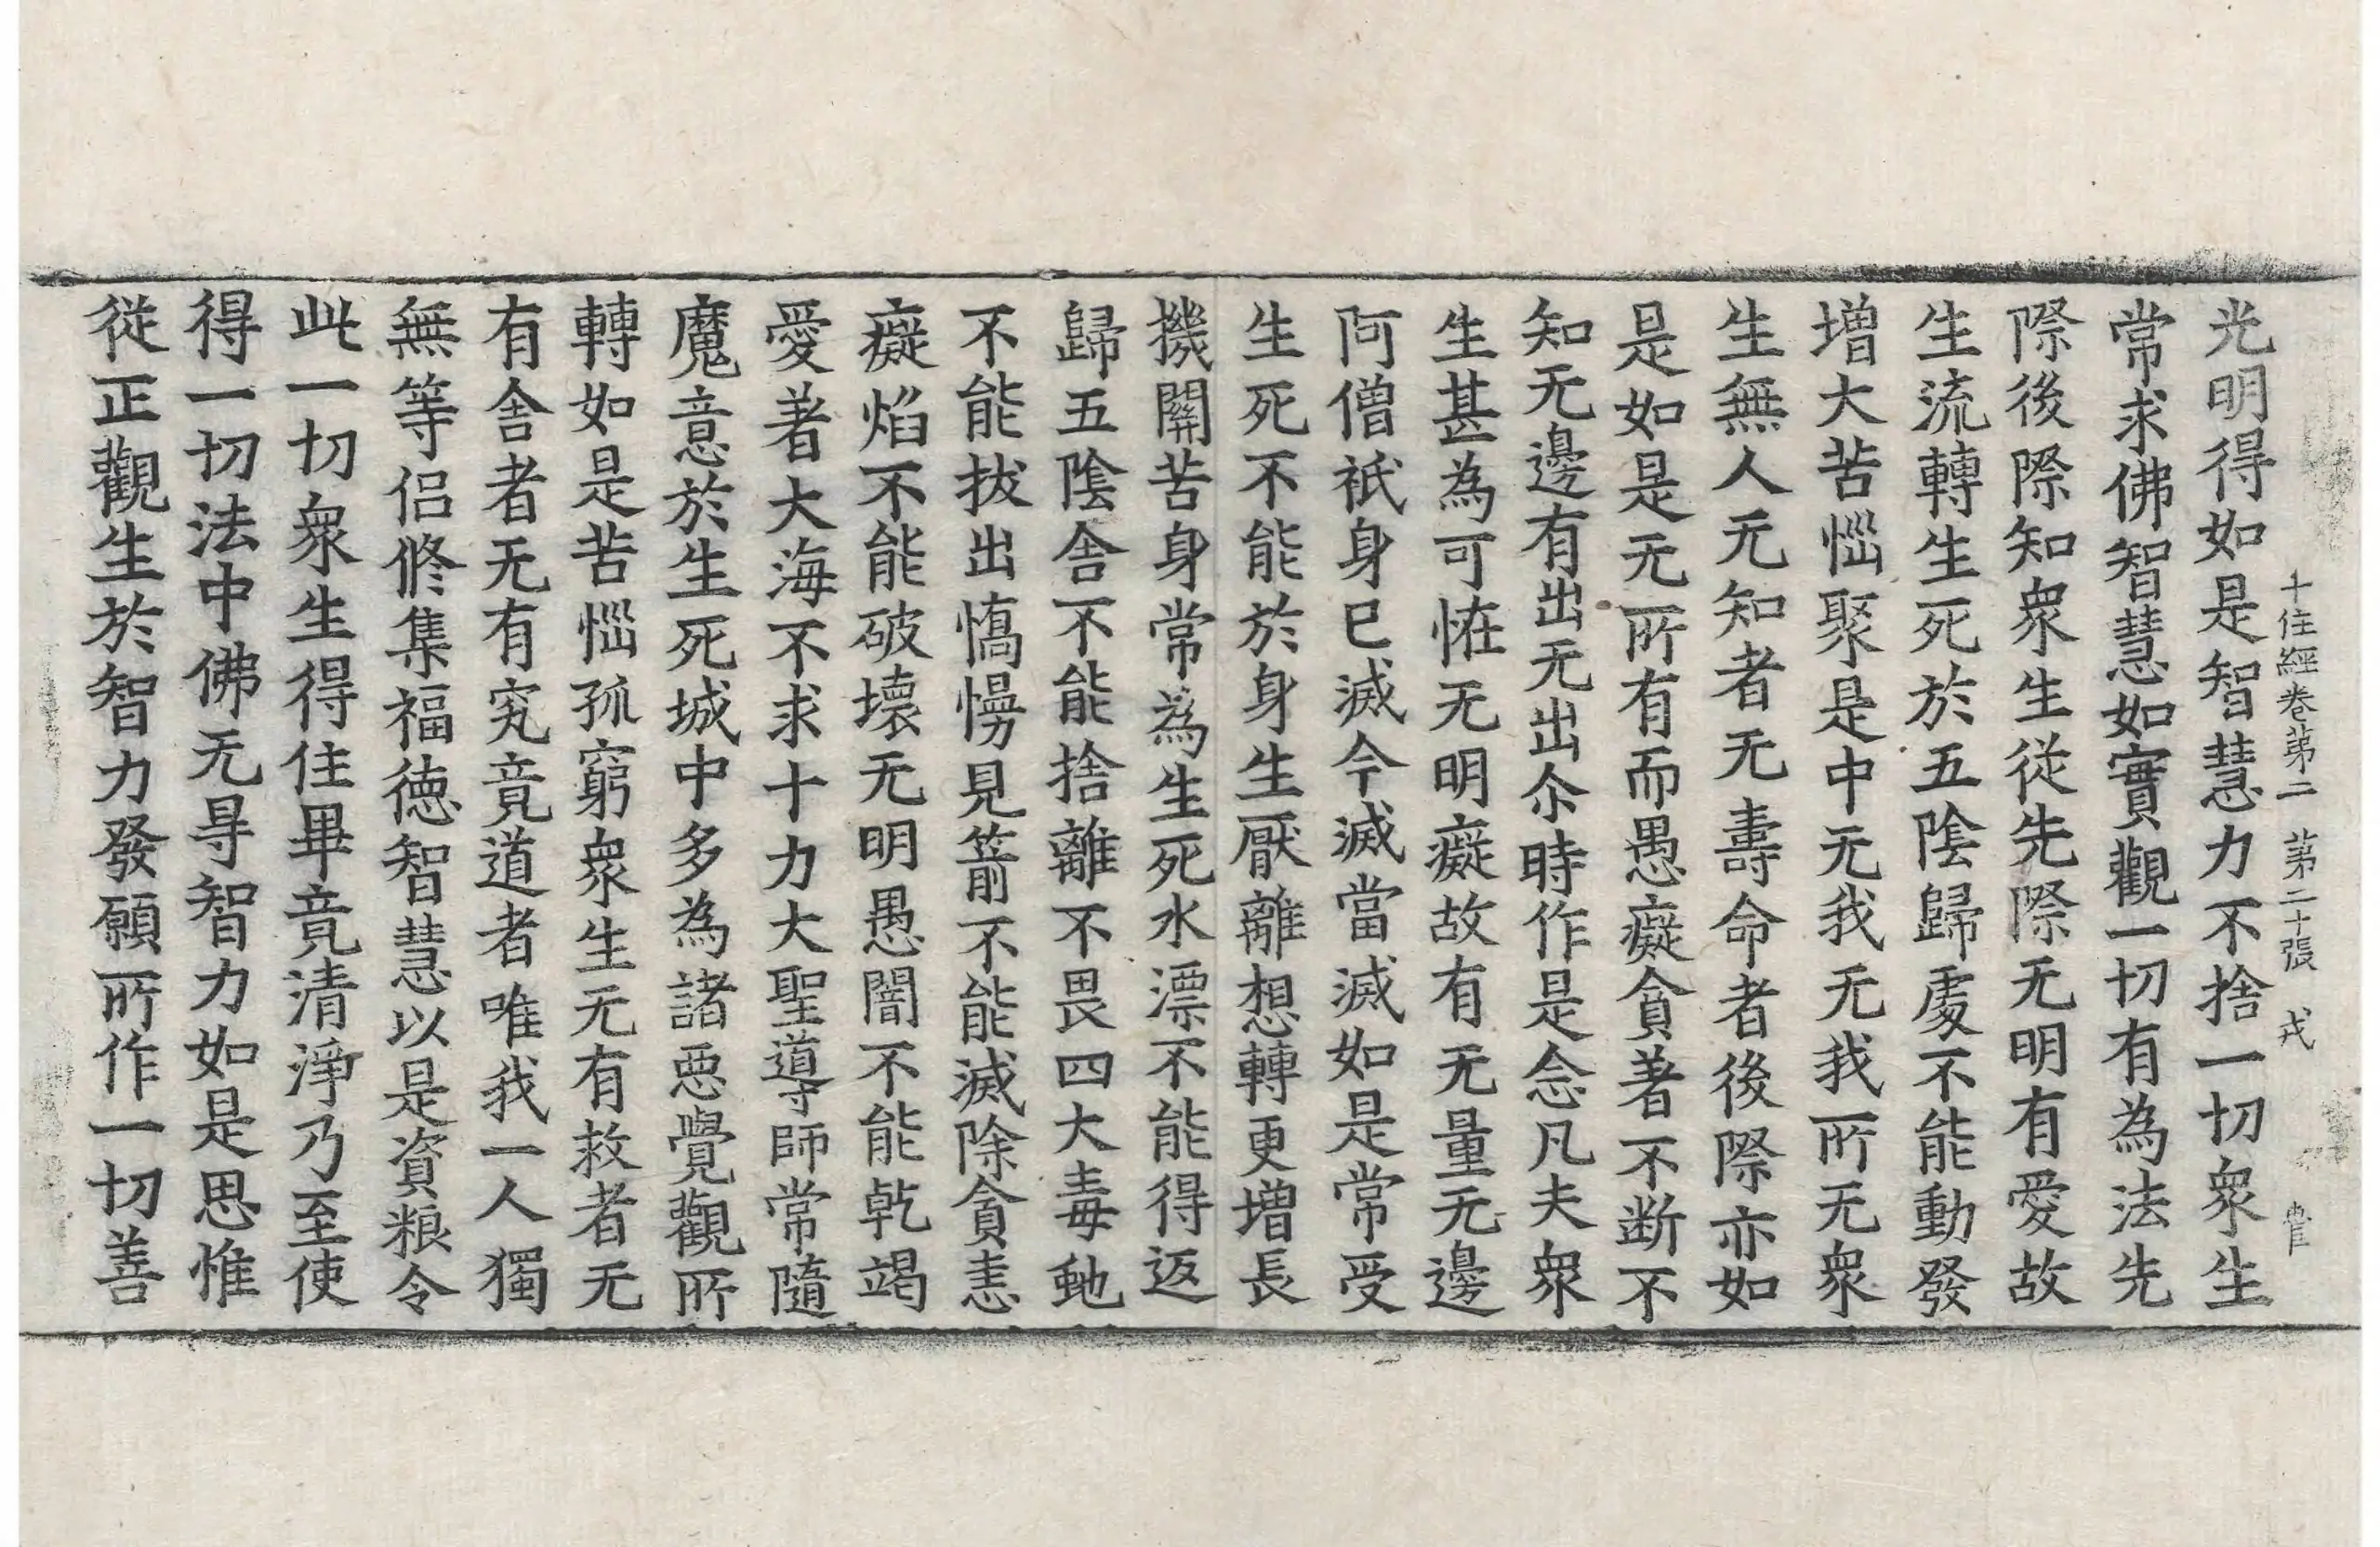 十住經卷第二 第二十張 戎
光明得如是智慧力不捨一切衆生
常求佛智慧如實觀一切有為法先
際後際知衆生從先際无明有愛故
生流轉生死於五陰歸處不能動發
增大苦惱聚是中无我无我所无衆
生無人无知者无壽命者後際亦如
是如是无所有而愚癡貪著不断不
知无邊有出无出尒時作是念凡夫衆
生甚為可恠无明癡故有无量无邊
阿僧祇身已滅今滅當滅如是常受
生死不能於身生厭離想轉更增長
機關苦身常為生死水漂不能得返
歸五陰舍不能捨離不畏四大毒虵
不能拔出憍慢見箭不能滅除貪恚
癡焰不能破壞无明愚闇不能乾竭
愛著大海不求十力大聖導師常隨
魔意於生死城中多為諸惡覺觀所
轉如是苦惱孤窮衆生无有救者无
有舍者无有究竟道者唯我一人獨
無等侣修集福德智慧以是資粮令
此一切衆生得住畢竟清淨乃至使
得一切法中佛无㝵智力如是思惟
從正觀生於智力發願所作一切善